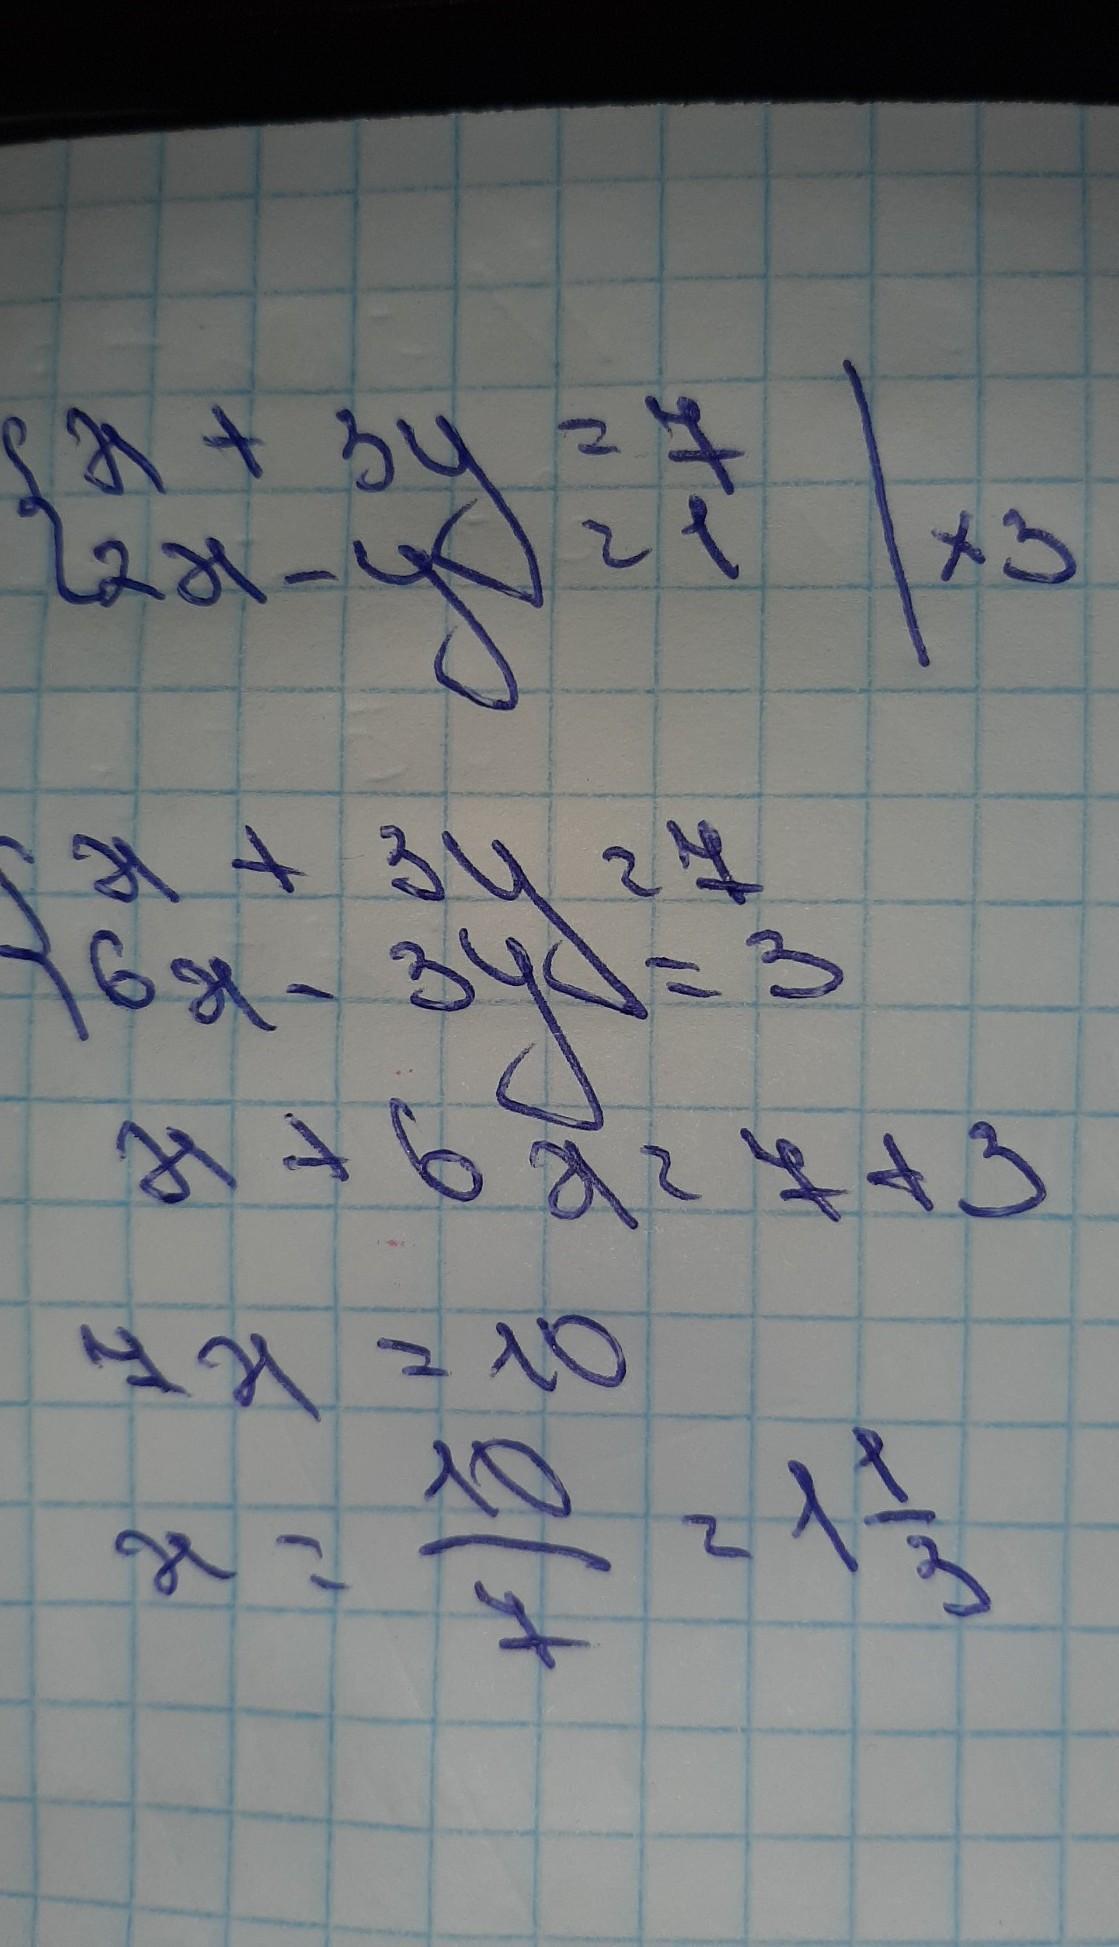 { x + 3y = 7
2x - y = 1 | × 3
{ x + 3y = 7
6x - 3y = 3
x + 6x = 7 + 3
7x = 10
x = 10/7 = 1 1/3